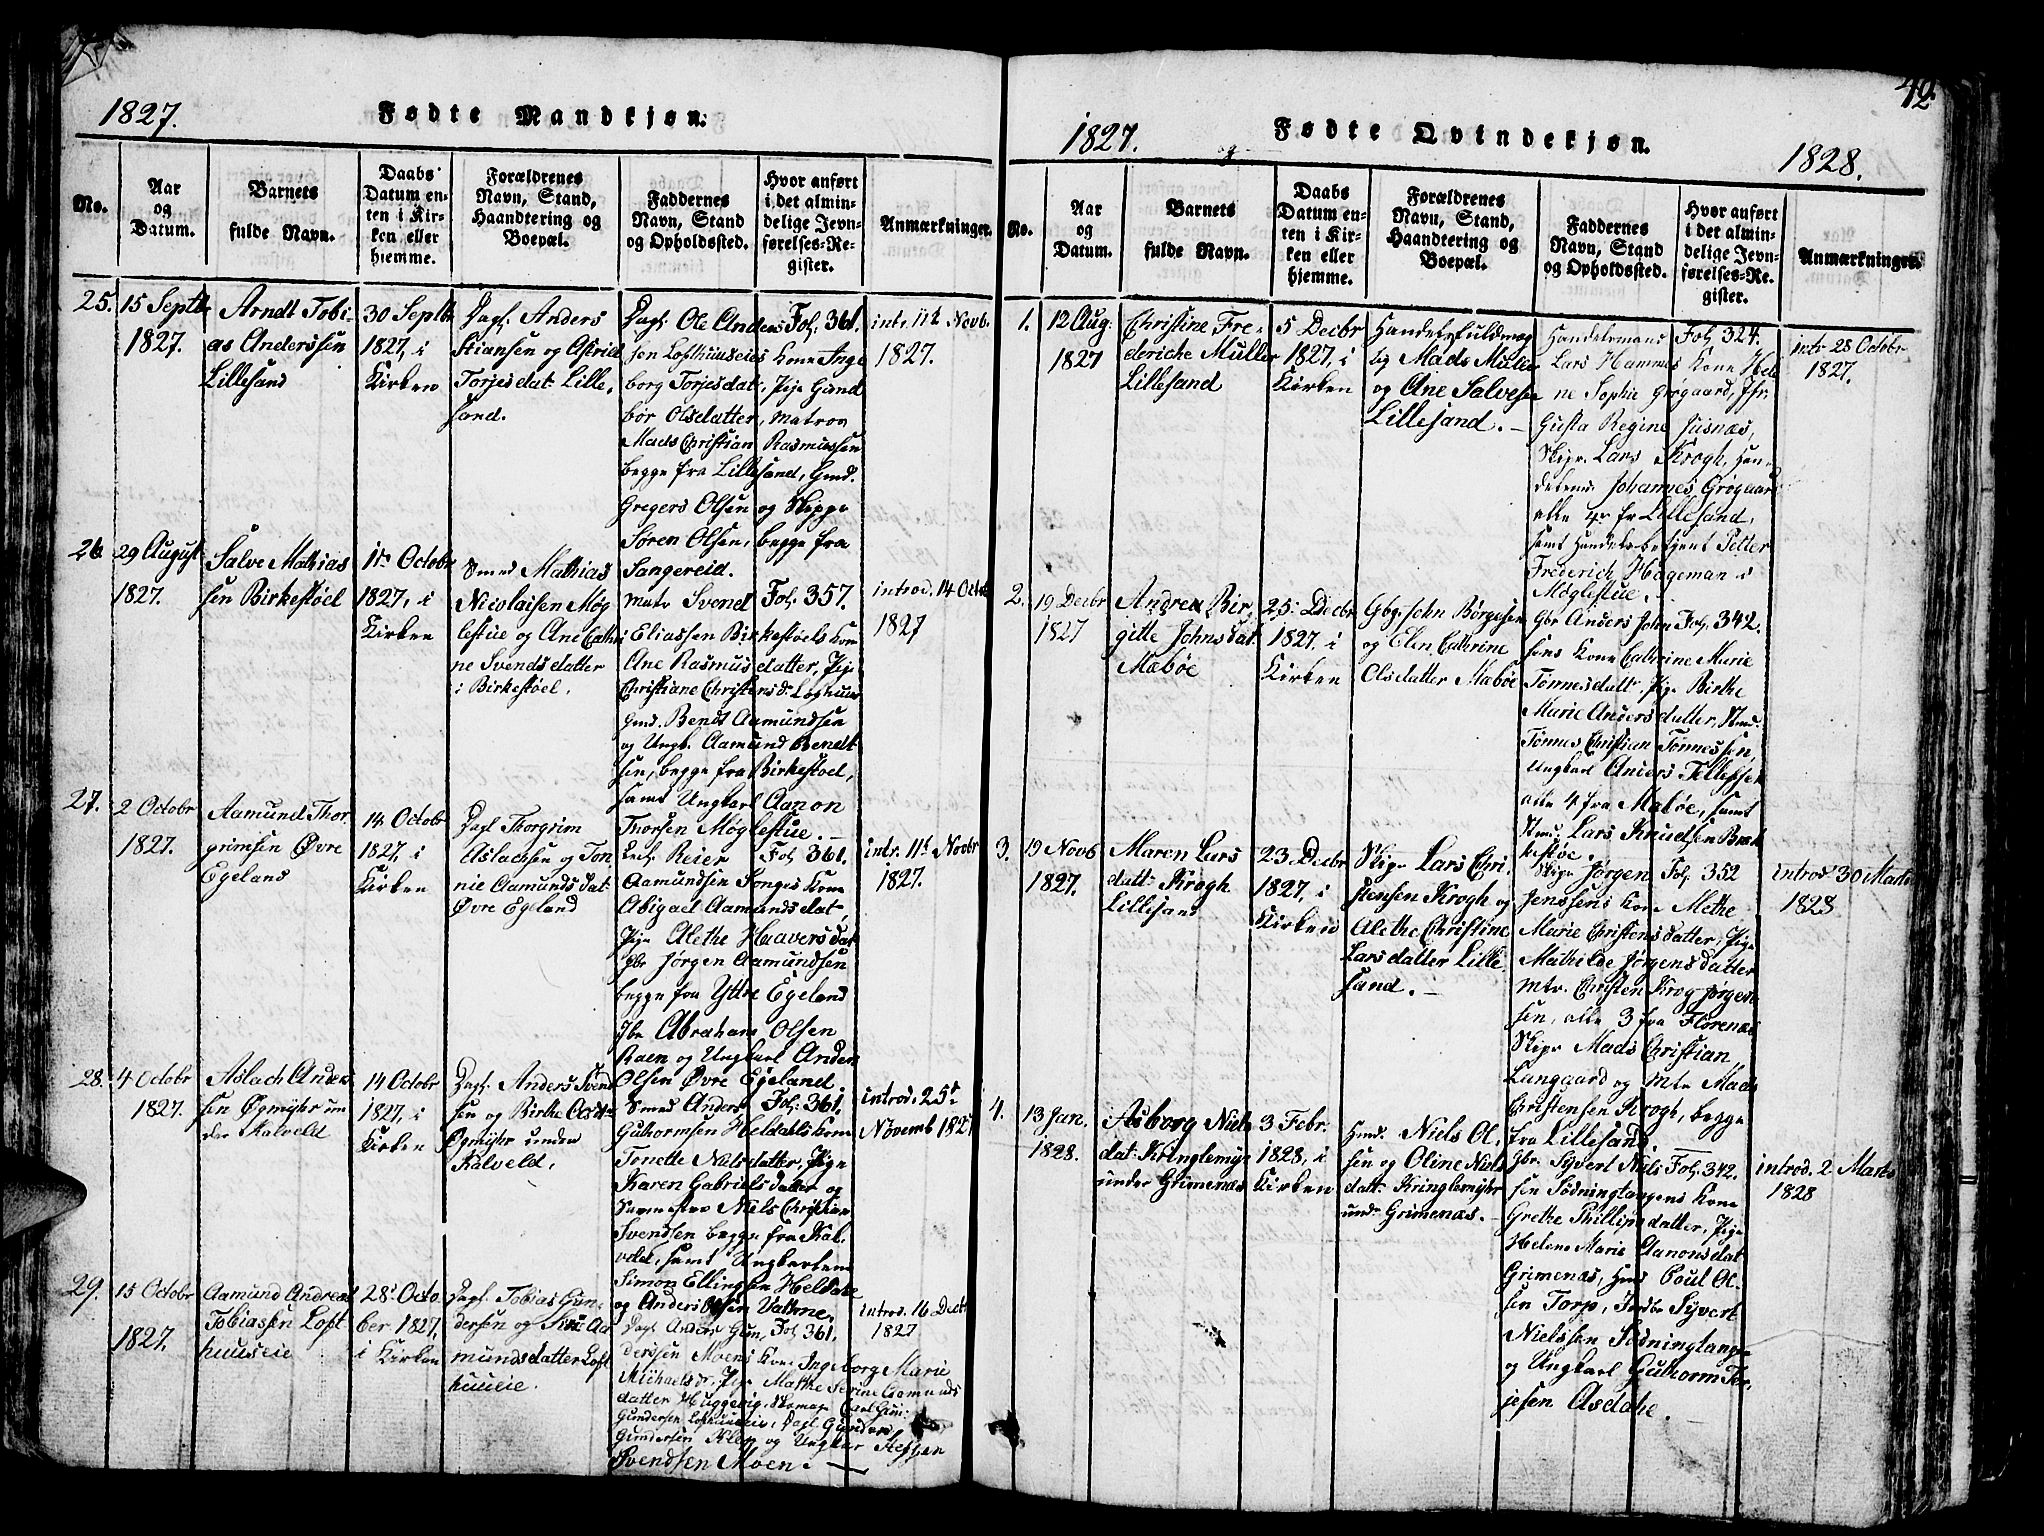 1827. Fødte Mandkjøn.
No.
Aar
og
Datum.
Barnets
fulde Navn.
Daabs
Datum en-
ten i Kir-
ken eller
hjemme.
Forældrenes
Navn, Stand,
Haandtering og
Boepæl.
Faddernes
Navn, Stand
og Opholdssted.
Hvor anført
i det almin-
delige Jevn-
førelses-Re-
gister.
Anmærkninger.
25.
15 Septbr
1827.
Arndt Tobi-
as Anderssen
Lillesand
30 Septbr
1827, i
Kirken
Dagl. Anders
Stiansen og Astrid
Torjesdat. Lille-
sand.
Dagl. Ole Anders
sen Lofthuuseies Kone Inge
borg Torjesdat, Pige Gund
bør Olsdatter, Matros
Mads Christian Rasmussen
begge fra Lillesand, Gmd.
Gregers Olsen og Skippr
Søren Olsen, begge fra
Sangereid.
Fol. 361.
intr. 11t Novb.
1827.
26
29 August
1827.
Salve Mathias
sen Birkestøel
1ste Octobr
1827, i
Kirken
Smed Mathias
Nicolaisen Møg
lestue og Ane Cathri
ne Svendsdatter
i Birkestøel.
Matr Svend
Eliassen Birkestøels Kone
Ane Rasmusdatter, Pige
Christiane Christensd. Loghuus
Gmd. Bendt Aamundsen
og Ungk. Aamund Bendt
sen, begge fra Birkestøel,
samt Ungkarl Aanon
Thorsen Møglestue.
Fol. 357.
introd. 14 Octbr
1827
27.
2 Octobr
1827.
Aamund Thor
grimsen Øvre
Egeland
14 Octobr
1827, i
Kirken
Dagl. Thorgrim
Aslachsen og Ton
nie Aamundsdat.
Øvre Egeland
Reier
Aamundsen Songes Kone
Abigael Aamundsdat,
Pige Alethe Haaversdat
Gbr Jørgen Aamundsen
begge fra Yttre Egeland
Gbr Abraham Olsen
Raen og Ungkarl Anders
Olsen Øvre Egeland.
Fol. 361.
intr. 11t Novbr
1827.
28.
4 Octobr
1827.
Aslach Anders
sen Øgmyhr un
der Kalveld
14 Octobr
1827, i
Kirken
Dagl. Anders Svend
sen og Birthe
Øgmyhr under
Kalveld.
Smed Anders
Guthormsen Heldahls Kone
Tonette Nielsdatter, Pige
Karen Gabrielsdatter og
Niels Christian
Svendsen begge fra Kal
veld, samt Ungkarlene
Simon Ellingsen Heldahl
og Anders Olsen Vatne.
Fol. 361.
introd. 25t
Novemb 1827
29.
15 Octobr
1827.
Aamund Andreas
Tobiassen Loft
huuseie
28t Octo
ber 1827,
i Kirken
Dagl. Tobias Gun-
dersen og Siri Aa
mundsdatter Loft
huuseie.
Dagl Anders Gun,
derssen Moens Kone Ingeborg Marie
Michaelsdr. Pige Marthe Serine Aamunds
datter Huggevig, Skomagr Carl Gun:
Gundersen Lofthuuseie, Dagl Gunder
Gundersen Klep og Ungkar Steffen
Svendsen Moen.
Fol. 361.
introd. 16 Decbr
1827
42
1827. og 1828. Fødte Qvindekjøn.
No.
Aar
og
Datum.
Barnets
fulde Navn.
Daabs
Datum en-
ten i Kir-
ken eller
hjemme.
Forældrenes
Navn, Stand,
Haandtering og
Boepæl.
Faddernes
Navn, Stand
og Opholdssted.
Hvor anført
i det almin-
delige Jevn-
førelses-Re-
gister.
Anmærkninger.
1.
12 Aug.
1827
Christine Fre-
deriche Muller
Lillesand
5 Decbr
1827, i
Kirken
Handelsfuldmæg
tig Mads Muller
og Ane Salvesen
Lillesand.
Handelsmand
Lars Hammes Kone Hele
ne Sophie Grøgaard, Jfr.
Gusta Regine Jusnæs,
Skipr. Lars Krogh, Han-
delsmd. Johannes Grøgaard
alle 4r fr Lillesand,
samt Handelsbetjent Petter
Frederich Hageman i
Møglestue.
Fol. 324.
intr 28 Octobr
1827.
2.
19 Decbr
1827
Andrea Bir
gitte Johnsdat
Mæbøe
25. Decbr
1827. i
Kirken
Gbr. John Børgesen
og Elen Cathrine
Olsdatter Mæbøe
Gbr Anders John
sens Kone Cathrine Marie
Tønnesdatt. Pige Birthe
Marie Andersdatter,
Tønnes Christian Tønnessen,
Ungkarl Anders Tellefsen
alle 4 fra Mæbøe, samt
Lars Knudsen Birk
kestøe.
Fol. 342.
3.
19 Novb
1827.
Maren Lars
datt. Krogh
Lillesand
23 Decbr
1827, i
Kirken
Skipr Lars Chri-
stensen Krogh og
Alethe Christine
Larsdatter Lille
sand.
Skipr Jørgen
Jenssens Kone Methe
Marie Christensdatter, Pige
Mathilde Jørgensdatter
Mtr. Christen Krog Jørgen
sen, alle 3 fra Florenæs
Skipr Mads Christian
Langaard og Mtr Mads
Christensen Krogh, begge
fra Lillesand.
Fol. 352
introd 30 Marts
1828
4.
13 Jan.
1828.
Asborg Niels
dat. Kringlemyr
under Grimenæs
3 Febr.
1828, i
Kirken
Hmd. Niels Ol.
sen og Oline Niels
datt. Kringlemyhr
undr Grimenæs.
Gbr. Syvert Niels
sen Sødningtangens Kone
Grethe Phillipsdatter, Pige
Helene Marie Aanonsdat
Grimenæs, Poul Ol-
sen Torp, Syvert
Nielssen Sødningtangen
og Ungkarl Guthorm Tor-
jesen Asdahe.
Fol. 342.
introd. 2 Marts
1828